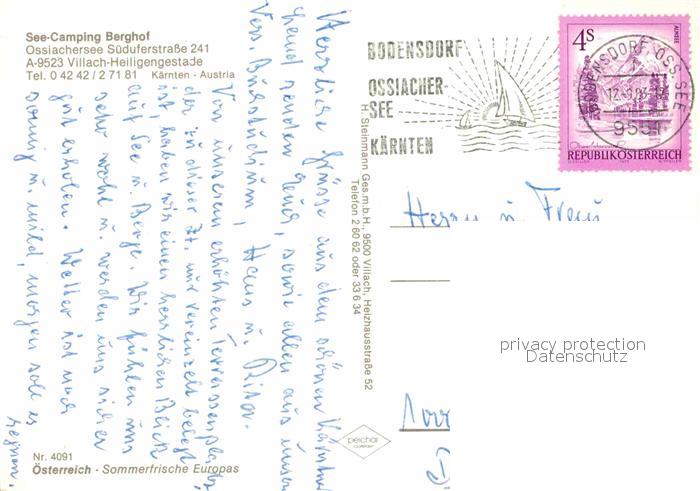 See-Camping Berghof
Ossiachersee Süduferstraße 241
A-9523 Villach-Heiligengestade
Tel. 0 42 42 / 2 71 81 Kärnten - Austria
BODENSDORF
OSSIACHER-
SEE
KÄRNTEN
4s
ALMSEE
REPUBLIK ÖSTERREICH
BODENSDORF OSS. SEE
9551
H. Steinmann Ges.m.b.H., 9500 Villach, Heizhausstraße 52
Telefon 2 60 62 oder 33 6 34
Herrliche Grüsse aus dem schönen Kärntner
Land senden Euch, sowie allen aus unserer
Hans u.
Von unserem erhöhten Terrassenplatz,
der zu dieser Zt. nur vereinzelt belegt
ist haben wir einen herrlichen Blick
auf See u. Berge. Wir fühlen uns
sehr wohl u. werden uns sicher
gut erholen. Wetter ist noch
sonnig u. mild, morgen soll es
regnen.
Herrn u. Frau
privacy protection
Datenschutz
Nr. 4091
Österreich - Sommerfrische Europas